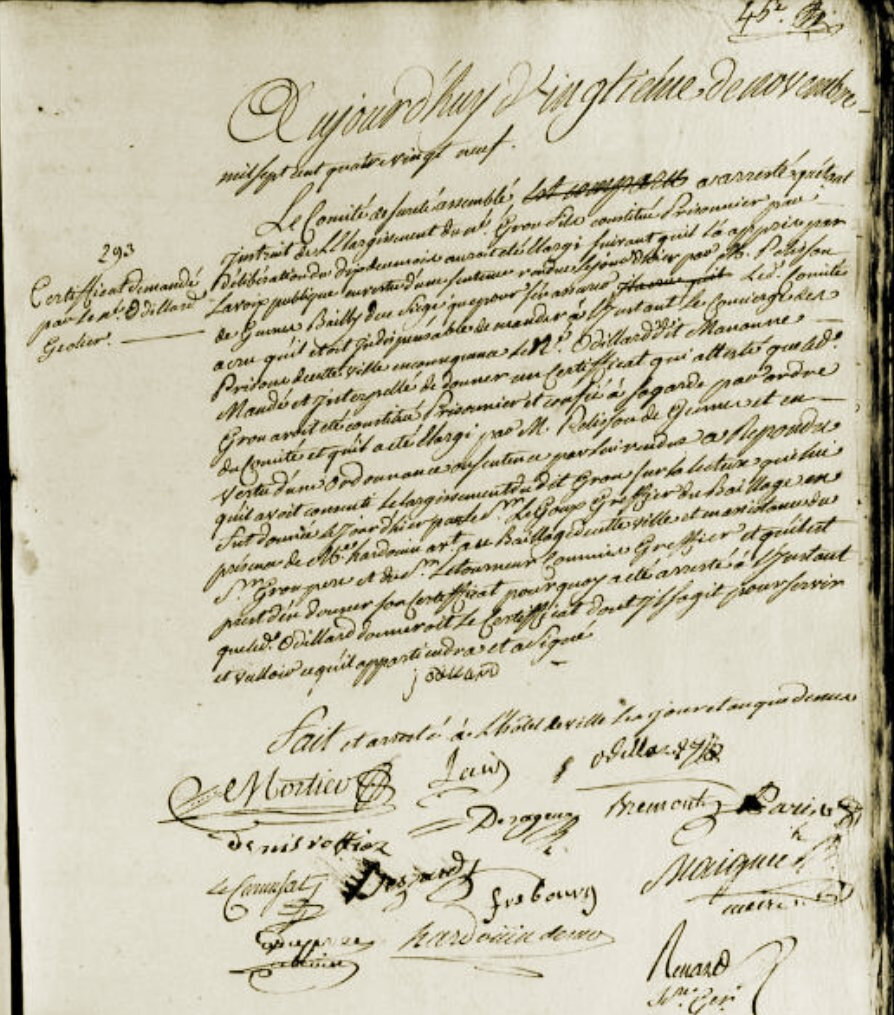 46e.
Aujourd'huy Vingtieme de novembre
mil sept cent quatre vingt neuf.
Le Comité de sureté assemblé, a arresté qu'étant
instruit de L'Elargissement du nè. Grou fils constitué Prisonnier par
Déliberation du dix de ce mois auroit été Elargi suivant qu'il l'a appris par
La voix publique en vertu d'une sentence rendue le jour d'hier par M. Pelisson
de Gennes Bailly de ce Siège que pour s'en assurer Led. Comité
a cru qu'il étoit Indispensable de mander à L'Instant Le Concierge des
Prisons de cette ville en consequence Le N. Odillard dit Manonne
Mandé et Interpellé de donner un Certifficat qui atteste que led.
Grou avoit été constitué Prisonnier et confié à sa garde par ordre
du Comité et qu'il a été Elargi par M. Pelisson de Gennes et en
vertu d'une Ordonnance ou sentence par lui rendue a Repondu
qu'il avoit consenti Le largissement du dit Grou sur la lecture qui lui
fut donnée le Jour d'hier par le Sr. Le Goux Greffier du Bailliage en
présence de Me. hardouin au Baillage de cette ville et du
Sr. Grou pere et du Sr. Letourneur Commis Greffier et qu'il est
prest d'en donner son Certifficat pourquoy a été arresté à L'Instant
que led. Odillard donneroit Le Certifficat dont Il s'agit pour servir
et valloir ce qu'il appartiendra et a signé
j odillard
293
Certifficat demandé
par le nè. Odillard
Geolier.
Fait et arresté à L'hôtel de ville Les jour et an que dessus
Mortier
odillard
Bremont
Paris
Denis
Maignée
maire
Le Camusat
frebourg
hardouin
Renard